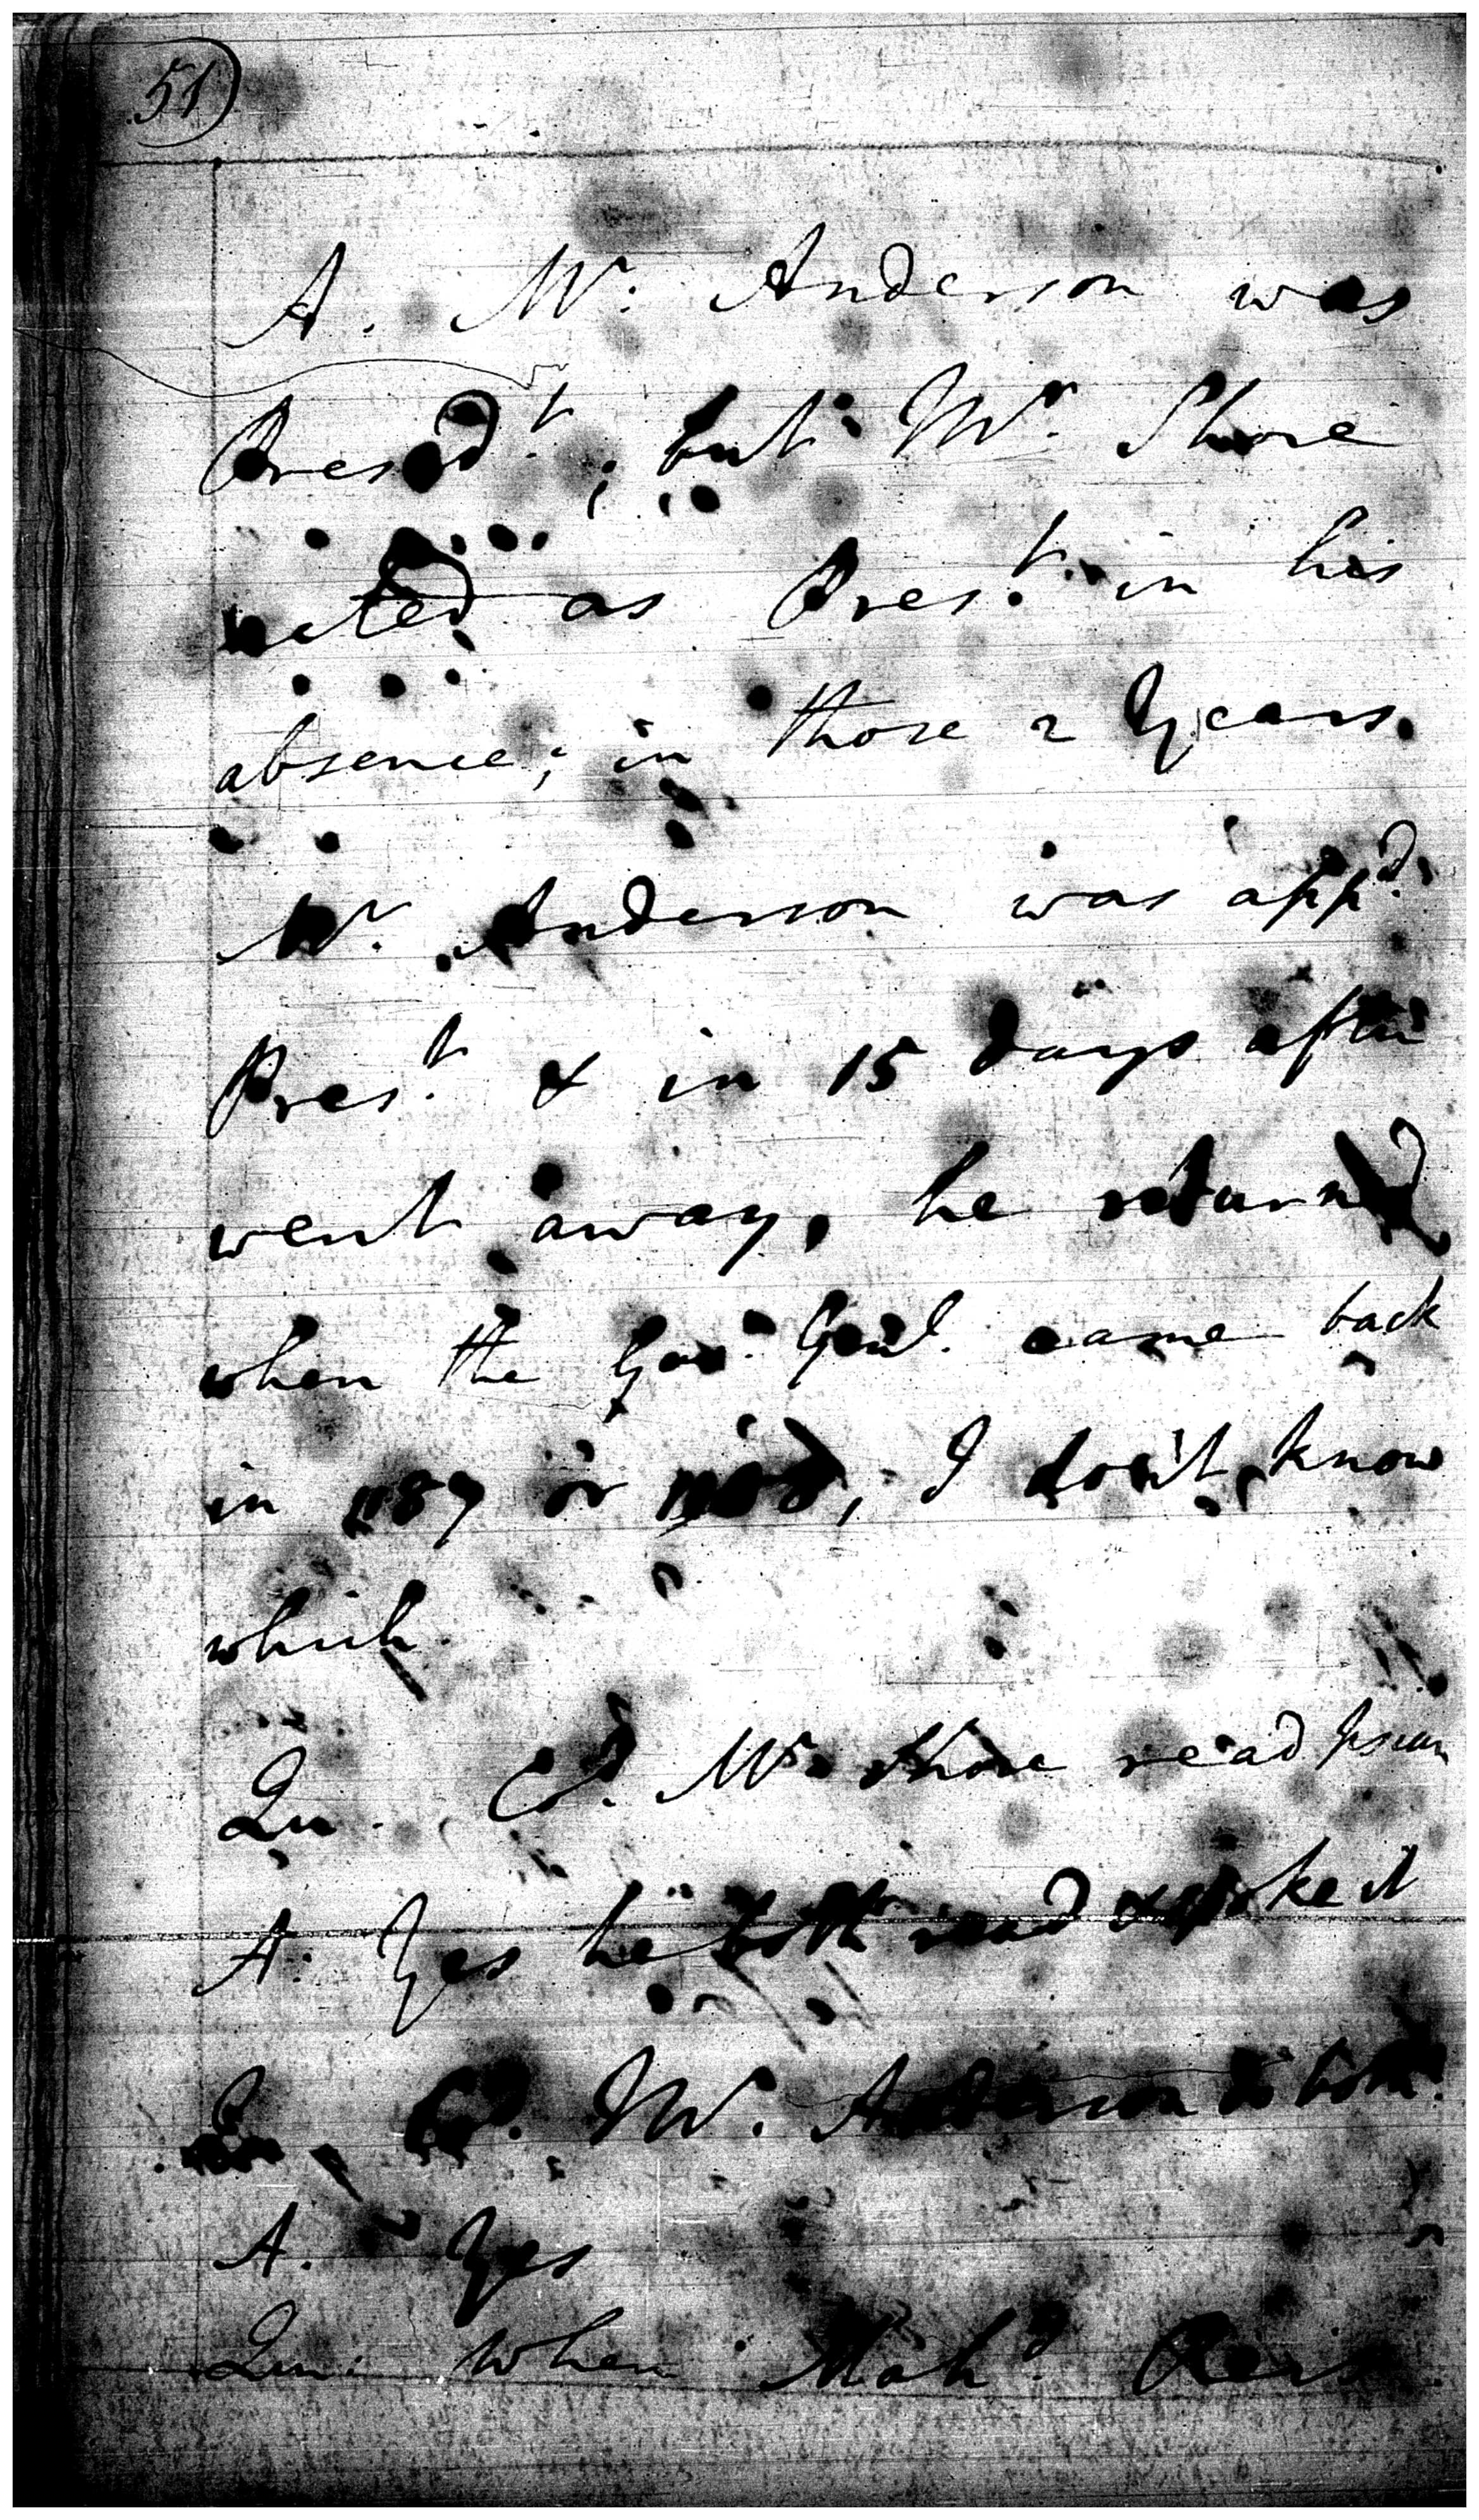 51)
A. Mr. Anderson was
Presdt; but Mr. Shore
acted as Prest. in his
absence; in those 2 Years
Mr. Anderson was appd.
Prest. & in 15 days after
went away, he returned
when the Gov. Genl. came back
in 1187 or 1188, I don't know
which.
Qu. Cd. Mr. Shore read Persian
A. Yes he both read & spoke it
Qu. Cd. Mr. Anderson do both
A. Yes
Qu: When Mahd. Reis